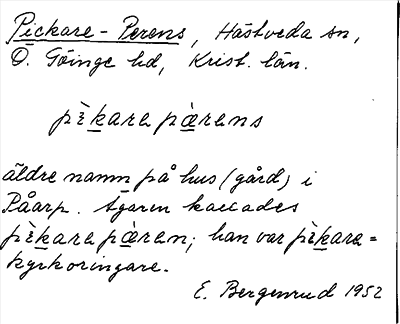 Pickare-Perens, Hästveda sn,
Ö. Göinge hd, Krist. län.
pɪ̀kara pæ̀rens
äldre namn på hus (gård) i
Påarp. Ägaren kallades
pɪ̀kara pæ̀ren; han var pɪ̀kara=
kyrkoringare.
E. Bergenrud 1952